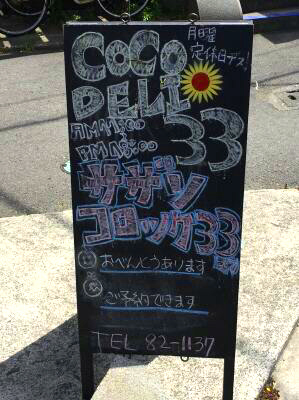 COCO
月曜
定休日デス!
DELi
33
AM11:00
PM18:00
サザン
コロッケ33
おべんとうあります
ご予約できます
TEL 82-1137